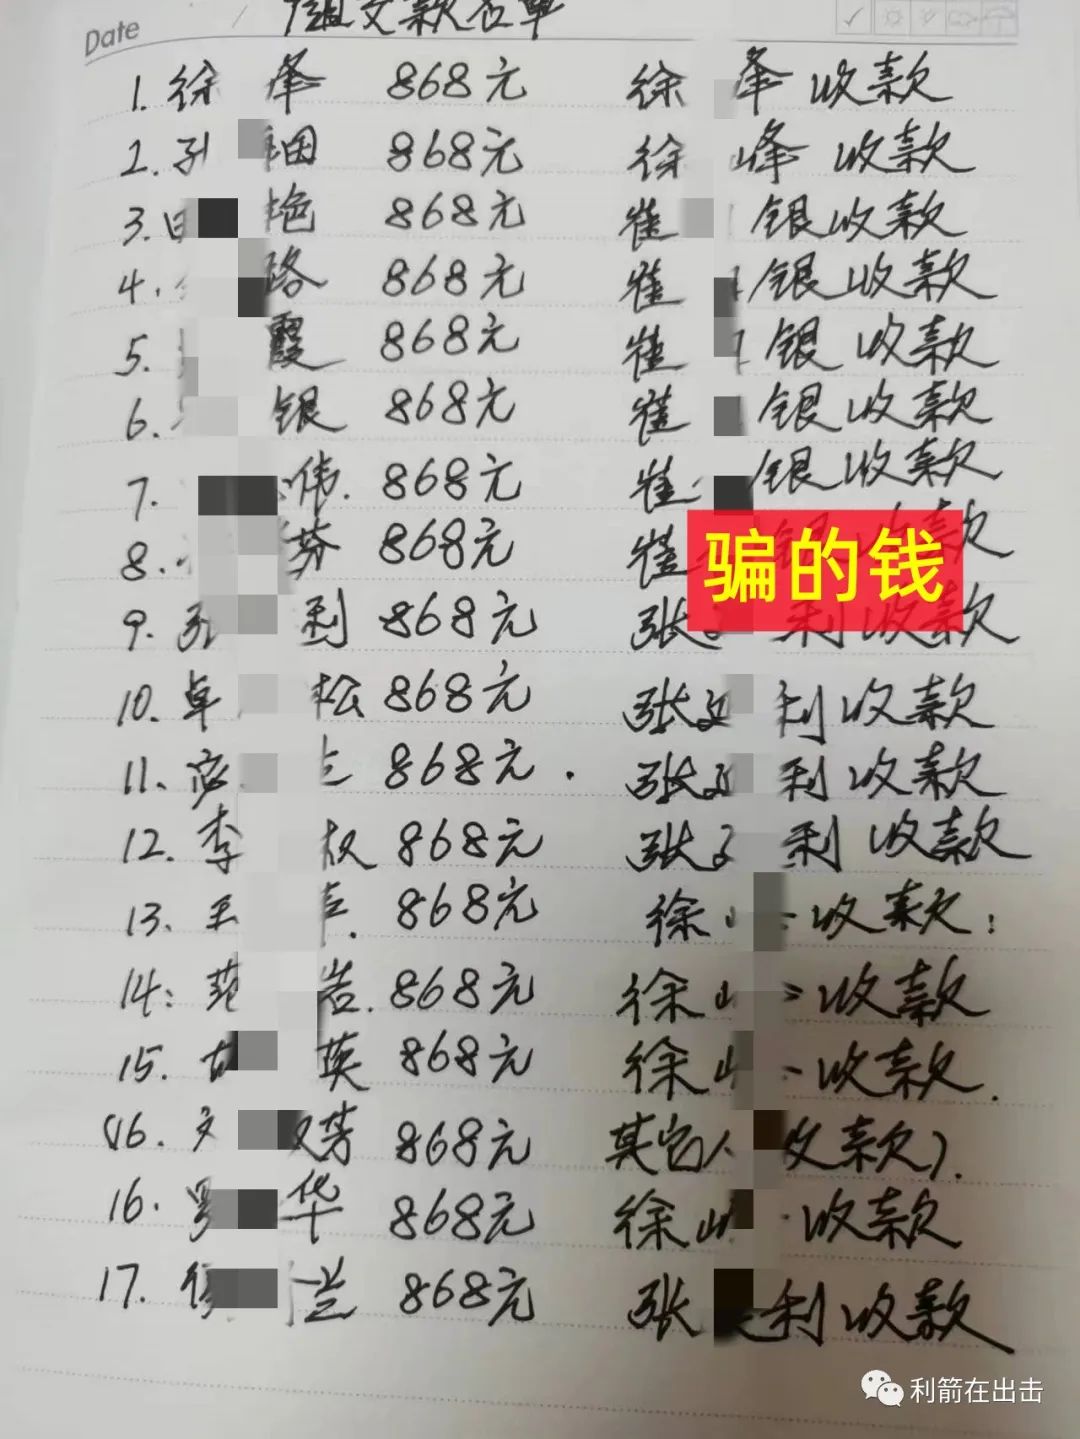 Date
组交款名单
1. 徐 峰 868元 徐 峰 收款
2. 孔 细 868元 徐 峰 收款
3. 田 艳 868元 崔 银收款
4. 路 868元 崔 银收款
5. 霞 868元 崔 银 收款
6. 银 868元 崔 银收款
7. 伟. 868元 崔 银收款
8. 芬 868元 崔 银 收款
骗的钱
9. 孔 利 868元 张 利收款
10. 卓 松 868元 张 利收款
11. 868元. 张 利收款
12. 李 权 868元 张 利收款
13. 868元 徐 收款:
14: 范 岩. 868元 徐 收款
15. 英 868元 徐 收款.
(16. 芳 868元 其它人 收款).
16. 华 868元 徐 收款
17. 兰 868元 张 利收款
利箭在出击